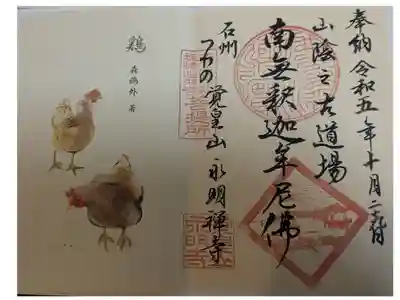 奉納 令和五年十月
山陰之古道場
南無釈迦牟尼佛
石州
つわの 覚皇山 永明禅寺
鶏
森鷗外 著